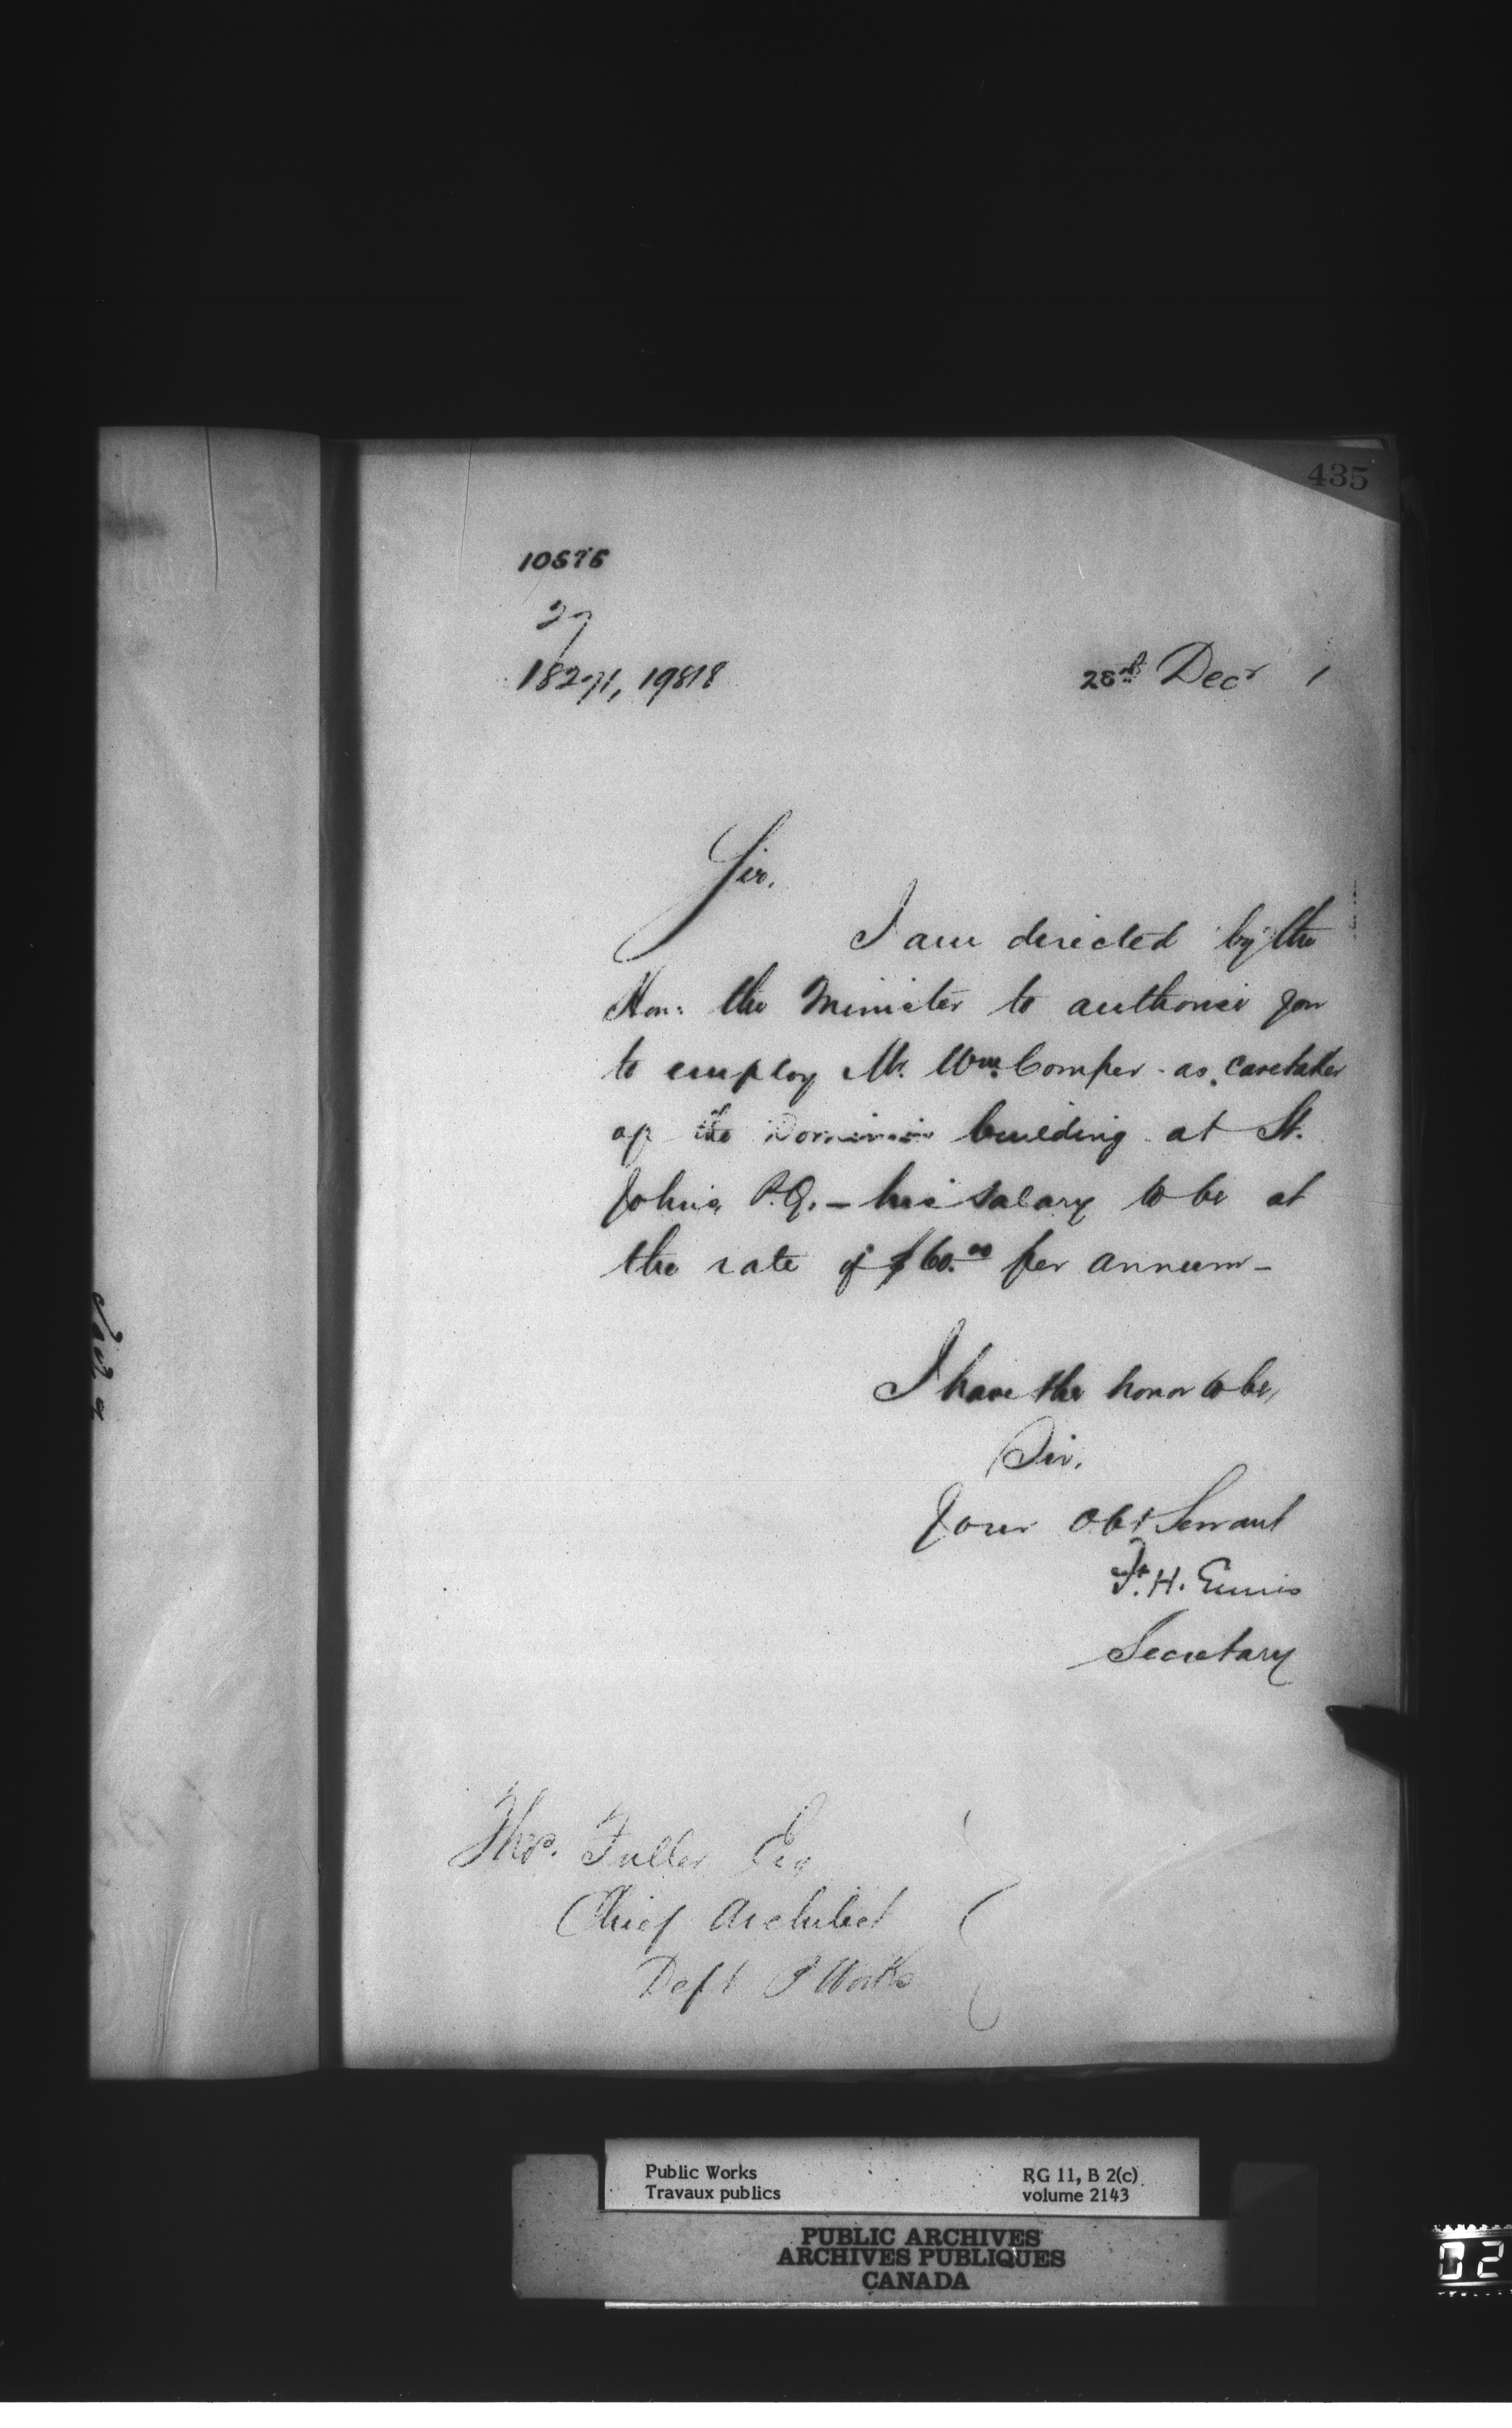 435
10575
27
18271, 19818
28th Decr 1
Sir,
I am directed by the
Hon: the Minister to authorise you
to employ Mr. Wm. Comper as caretaker
of the Dominion building at St.
Johns, P.Q. — his salary to be at
the rate of $60.00 per annum —
I have the honor to be,
Sir,
Your Obt Servant
F. H. Ennis
Secretary
Thos. Fuller Esq
Chief Architect
Dept P Works
Public Works
Travaux publics
RG 11, B 2(c)
volume 2143
PUBLIC ARCHIVES
ARCHIVES PUBLIQUES
CANADA
02